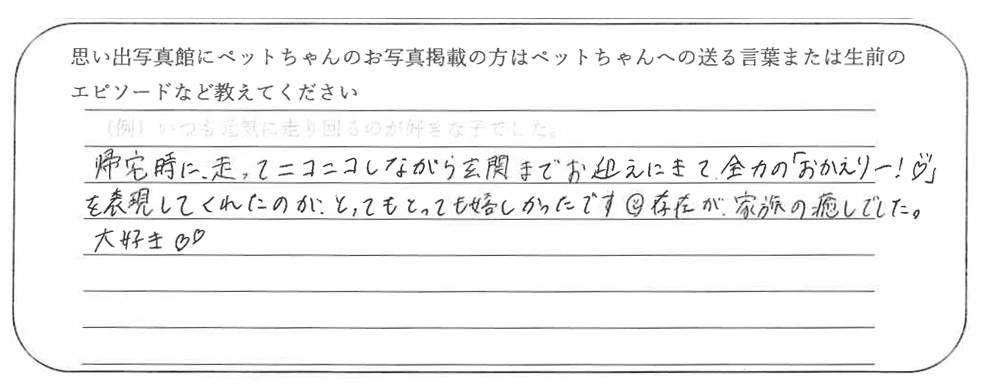 思い出写真館にペットちゃんのお写真掲載の方はペットちゃんへの送る言葉または生前の
エピソードなど教えてください
(例)いつも元気に走り回るのが好きな子でした。
帰宅時に、走ってニコニコしながら玄関までお迎えにきて、全力の「おかえりー!♡」
を表現してくれたのが、とってもとっても嬉しかったです☺存在が、家族の癒しでした。
大好き♡♡